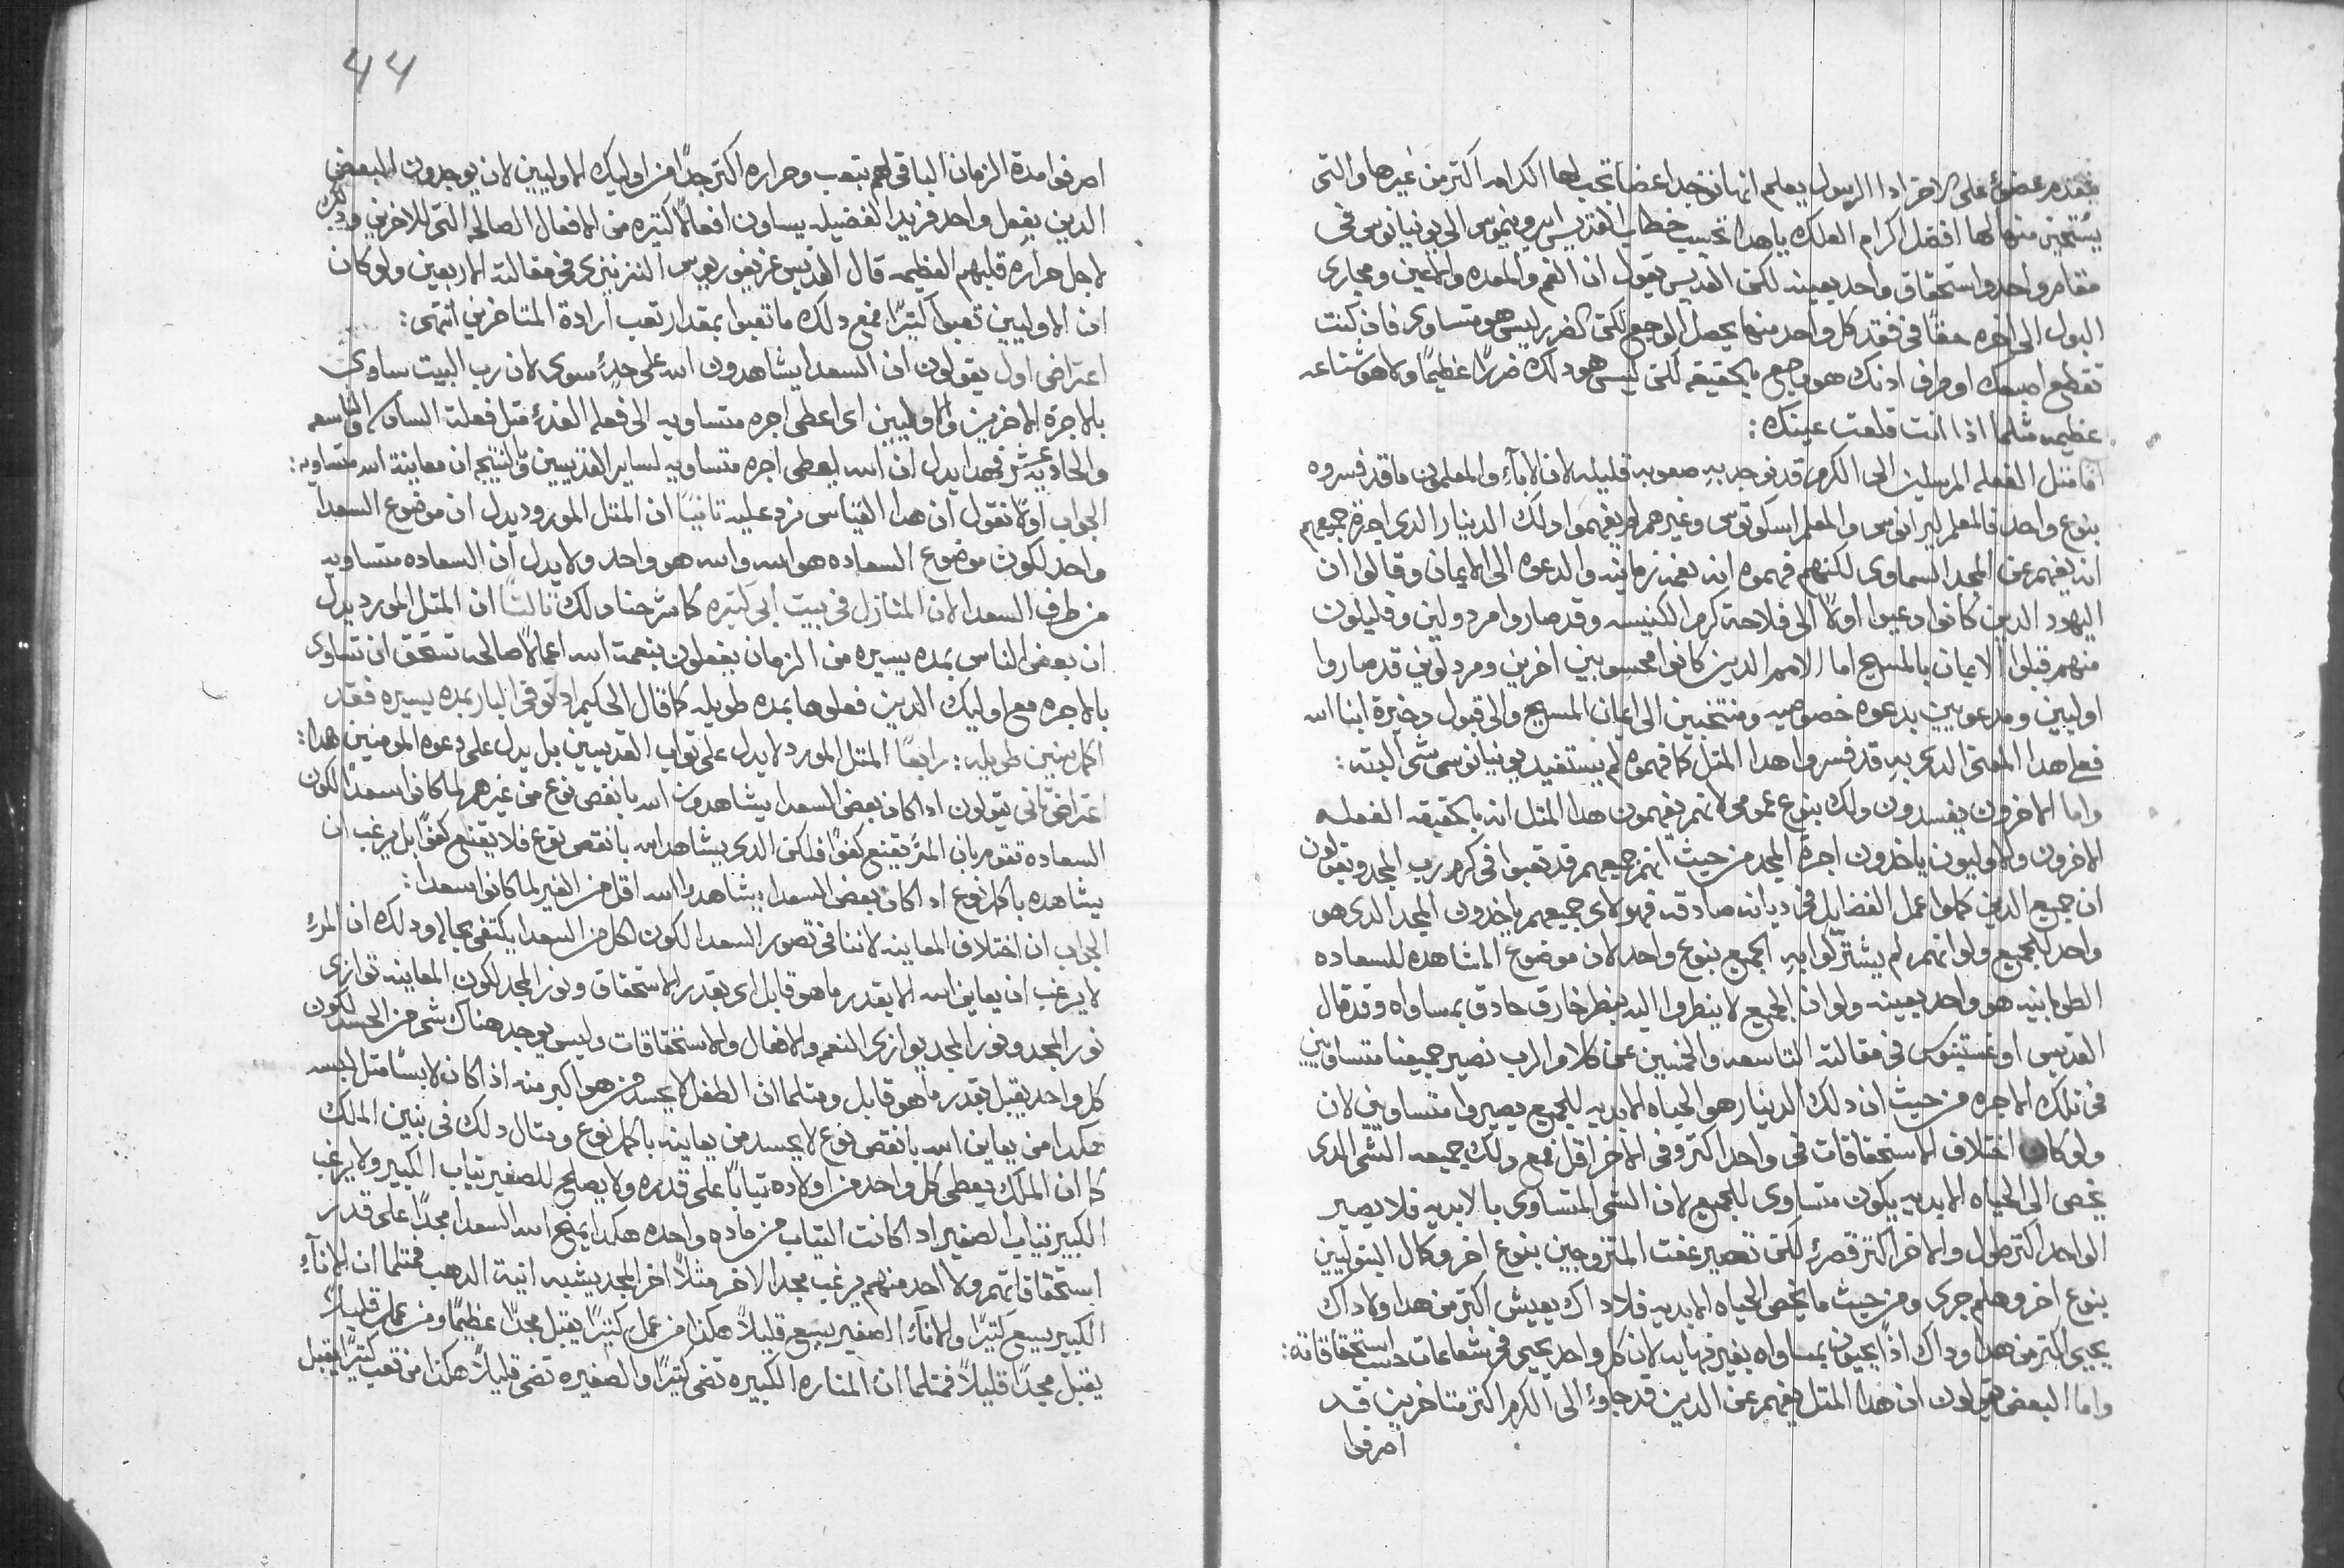 يتقدم عضوٌ على الاخر اذا الرسول يعلم انها توجد اعضا تجب لها الكرامه اكتر من غيرها والتى
يُستحين منها لها افضل اكرام العلك ياهدا تحسب خطاب القديس ايرونيموس الى يونيانوس فى
مقام واحد واستحقاق واحد بعينه لكن القديس يقول ان الفم والمعده والاعين ومجارى
البول الى اخره حقًا فى فقد كل واحد منها يحصل الوجع لكن الضرر ليس هو متساوى فان كنت
تقطع اصبعك او طرف ادنك هو وجع بالحقيقه لكن ليس هو دلك ضررًا عظيمًا ولا هو شناعه
عظيمه متلما اذا انت قلعت عينك:
فامتل الفعله المرسلين الى الكرم قد توجد به صعوبه قليله لان الاباء والمعلمون ما قد فسروه
بنوع واحد فالمعلم ليرانوس والمعلم اسكوتوس وغيرهم لم يفهموا دلك الدينار الدى اجرة جميعهم
انه يفهم عن المجد السماوى لكنهم فهموه انه نعمه زمانيه والدعوه الى الايمان وقالوا ان
اليهود الدين كانوا دعيوا اولًا الى فلاحة كرم الكنيسه وقد صاروا مردولين وقليلون
منهم قبلوا الايمان بالمسيح اما الامم الدين كانوا محسوبين اخرين ومردولين قد صاروا
اوليين ومدعويين بدعوه خصوصيه ومنتخبين الى ايمان المسيح والى قبول دخيرة ابنا الله
فعلى هدا المعنى الدى به قد فسروا هدا المتل كما فهموه لم يستفيد يونيانوس شى البته:
واما الاخرون يفسدون دلك بنوع عمومى لانهم يفهمون هدا المتل انه بالحقيقه الفعله
الاخرون والاوليون ياخدون اجرة المجد من حيث انهم جميعهم قد تعبوا فى كرم رب المجد ويقولون
ان جميع الدين كملوا عمل الفضايل فى ديانه صادقه فهولاى جميعهم ياخدون المجد الدى هو
واحد للجميع ولو انهم لم يشتركوا به الجميع بنوع واحد لان موضوع المشاهده للسعاده
الطوبانيه هو واحد بعينه ولو ان الجميع لا ينظروا اليه بنظر خارق حادق بمساواه وقد قال
القديس اوغستينوس فى مقالته التاسعه والخمسين عن كلام الرب نصير جميعنا متساويين
فى تلك الاجره من حيث ان دلك الدينار هو الحياه الابديه للجميع يصيروا متساويين لان
ولو كان اختلاف الاستحقاقات فى واحد اكتر وفى الاخر اقل فمع دلك جميعه الشى الدى
يخص الى الحياه الابديه يكون متساوى للجميع لان الشى المتساوى بالابديه فلا يصير
الواحد اكتر طول والاخر اكتر قصرٍ لكن تصير عفت المتزوجين بنوع اخر وكمال البتوليين
بنوع اخر وهلم جرى ومن حيث ما يخص الحياه الابديه فلا داك يعيش اكتر من هدا ولا داك
يحيى اكتر من هدا وداك اذًا يحيون بمساواه بغير نهايه لان كل واحد يحيى فى شعاعات حسب استحقاقاته:
واما البعض يقولون ان هدا المتل يفهم عن الدين قد جاوا الى الكرم اكتر متاخرين قد
اصرفوا
44
اصرفوا مدة الزمان الباقى لهم بتعب وحراره اكتر جدًا من اوليك الاوليين لان يوجدون البعض
الدين بفعل واحد فريد الفضيله يساون افعالًا كتيره من الافعال الصالحه التى للاخرين ودلك
لاجل حرارة قلبهم العظيمه قال القديس غريغوريوس النزينزى فى مقالته الاربعين ولو كان
ان الاوليين تعبوا كتيرًا فمع دلك ما تعبوا بمقدار تعب ارادة المتاخرين انتهى:
اعتراض اول يقولون ان السعدا يشاهدون الله على حدٍ سوى لان رب البيت ساوى
بالاجره الاخرين والاوليين اى اعطى اجره متساويه الى فعله الغدٍ متل فعلت الساعه التاسعه
والحاديه عشر فهدا يدل ان الله يعطى اجره متساويه لساير القديسين والنتيجه ان معاينة الله متساويه:
الجواب اولًا نقول ان هدا القياس نرد عليه تانيًا ان المتل المورود يدل ان موضوع السعدا
واحد لكون موضوع السعاده هو الله والله هو واحد ولا يدل ان السعاده متساويه
من طرف السعدا لان المنازل فى بيت ابى كتيره كما شرحنا دلك تالتًا ان المتل المورد يدل
ان بعض الناس بمده يسيره من الزمان يفعلون بنعمة الله اعمالًا صالحه تستحق ان تساوى
بالاجره مع اوليك الدين فعلوها بمده طويله كما قال الحكيم اد توفى البار بمده يسيره فقد
اكمل سنين طويله: رابعًا المتل المورد لا يدل على تواب القديسين بل يدل على دعوه المومنين هدا:
اعتراض تانى يقولون ادا كان بعض السعدا يشاهدون الله بانقص نوع من غيرهم لما كانوا سعدًا لكون
السعاده تقوم بان المرٌ يقتنع كفوًا فلكن الدى يشاهد الله بانقص نوع فلا يقتنع كفوًا بل يرغب ان
يشاهده باكمل نوع اد اكان بعض السعدا يشاهدوا الله اقل من الغير لما كانوا سعدا:
الجواب ان اختلاف المعاينه لاننا فى تصور السعدا لكون كل من السعدا يكتفى بحاله ودلك ان المرٌ
لا يرغب ان يعاين الله الا بقدر ما هو قابل اى بقدر الاستحقاق ونور المجد لكون المعاينه توازى
نور المجد ونور المجد يوازى النعم والافعال والاستحقاقات وليس يوجد هناك شى من الحسد لكون
كل واحد يقبل بقدر ما هو قابل ومتلما ان الطفل لا يحسد من هو اكبر منه اذا كان لابسًا متل لبسه
هكدا من يعاين الله بانقص نوع لا يحسد من يعاينه باكمل نوع ومتال دلك فى بنين الملك
كما ان الملك يعطى كل واحد من اولاده تيابًا على قدره ولا يصلح للصغير تياب الكبير ولا يرغب
الكبير تياب الصغير اد اكانت التياب من ماده واحده هكدا يمنح الله السعدا مجدًا على قدر
استحقاقاتهم ولا احد منهم يرغب مجد الاخر متلًا اخر المجد يشبه انية الدهب فمتلما ان الاناء
الكبير يسع كتيرًا والاناء الصغير يسع قليلًا هكدا من عمل كتيرًا يقبل مجدًا عظيمًا ومن عمل قليلًا
يقبل مجدًا قليلًا فمتلما ان المناره الكبيره تضى كتيرًا والصغيره تضى قليلًا هكدا من تعب كتيرًا يقبل